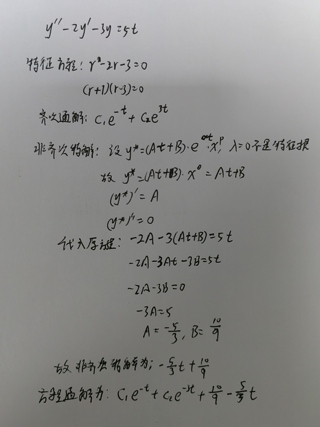 y''-2y'-3y=5t
特征方程: r²-2r-3=0
(r+1)(r-3)=0
齐次通解: C₁e^{-t}+C₂e^{3t}
非齐次特解: 设 y*=(At+B)·e^{0t}·x⁰, λ=0不是特征根
故 y*=(At+B)·x⁰=At+B
(y*)'=A
(y*)''=0
代入原方程: -2A-3(At+B)=5t
-2A-3At-3B=5t
-2A-3B=0
-3A=5
A=-5/3, B=10/9
故非齐次特解为: -5/3t+10/9
方程通解为: C₁e^{-t}+C₂e^{-3t}+10/9-5/3t